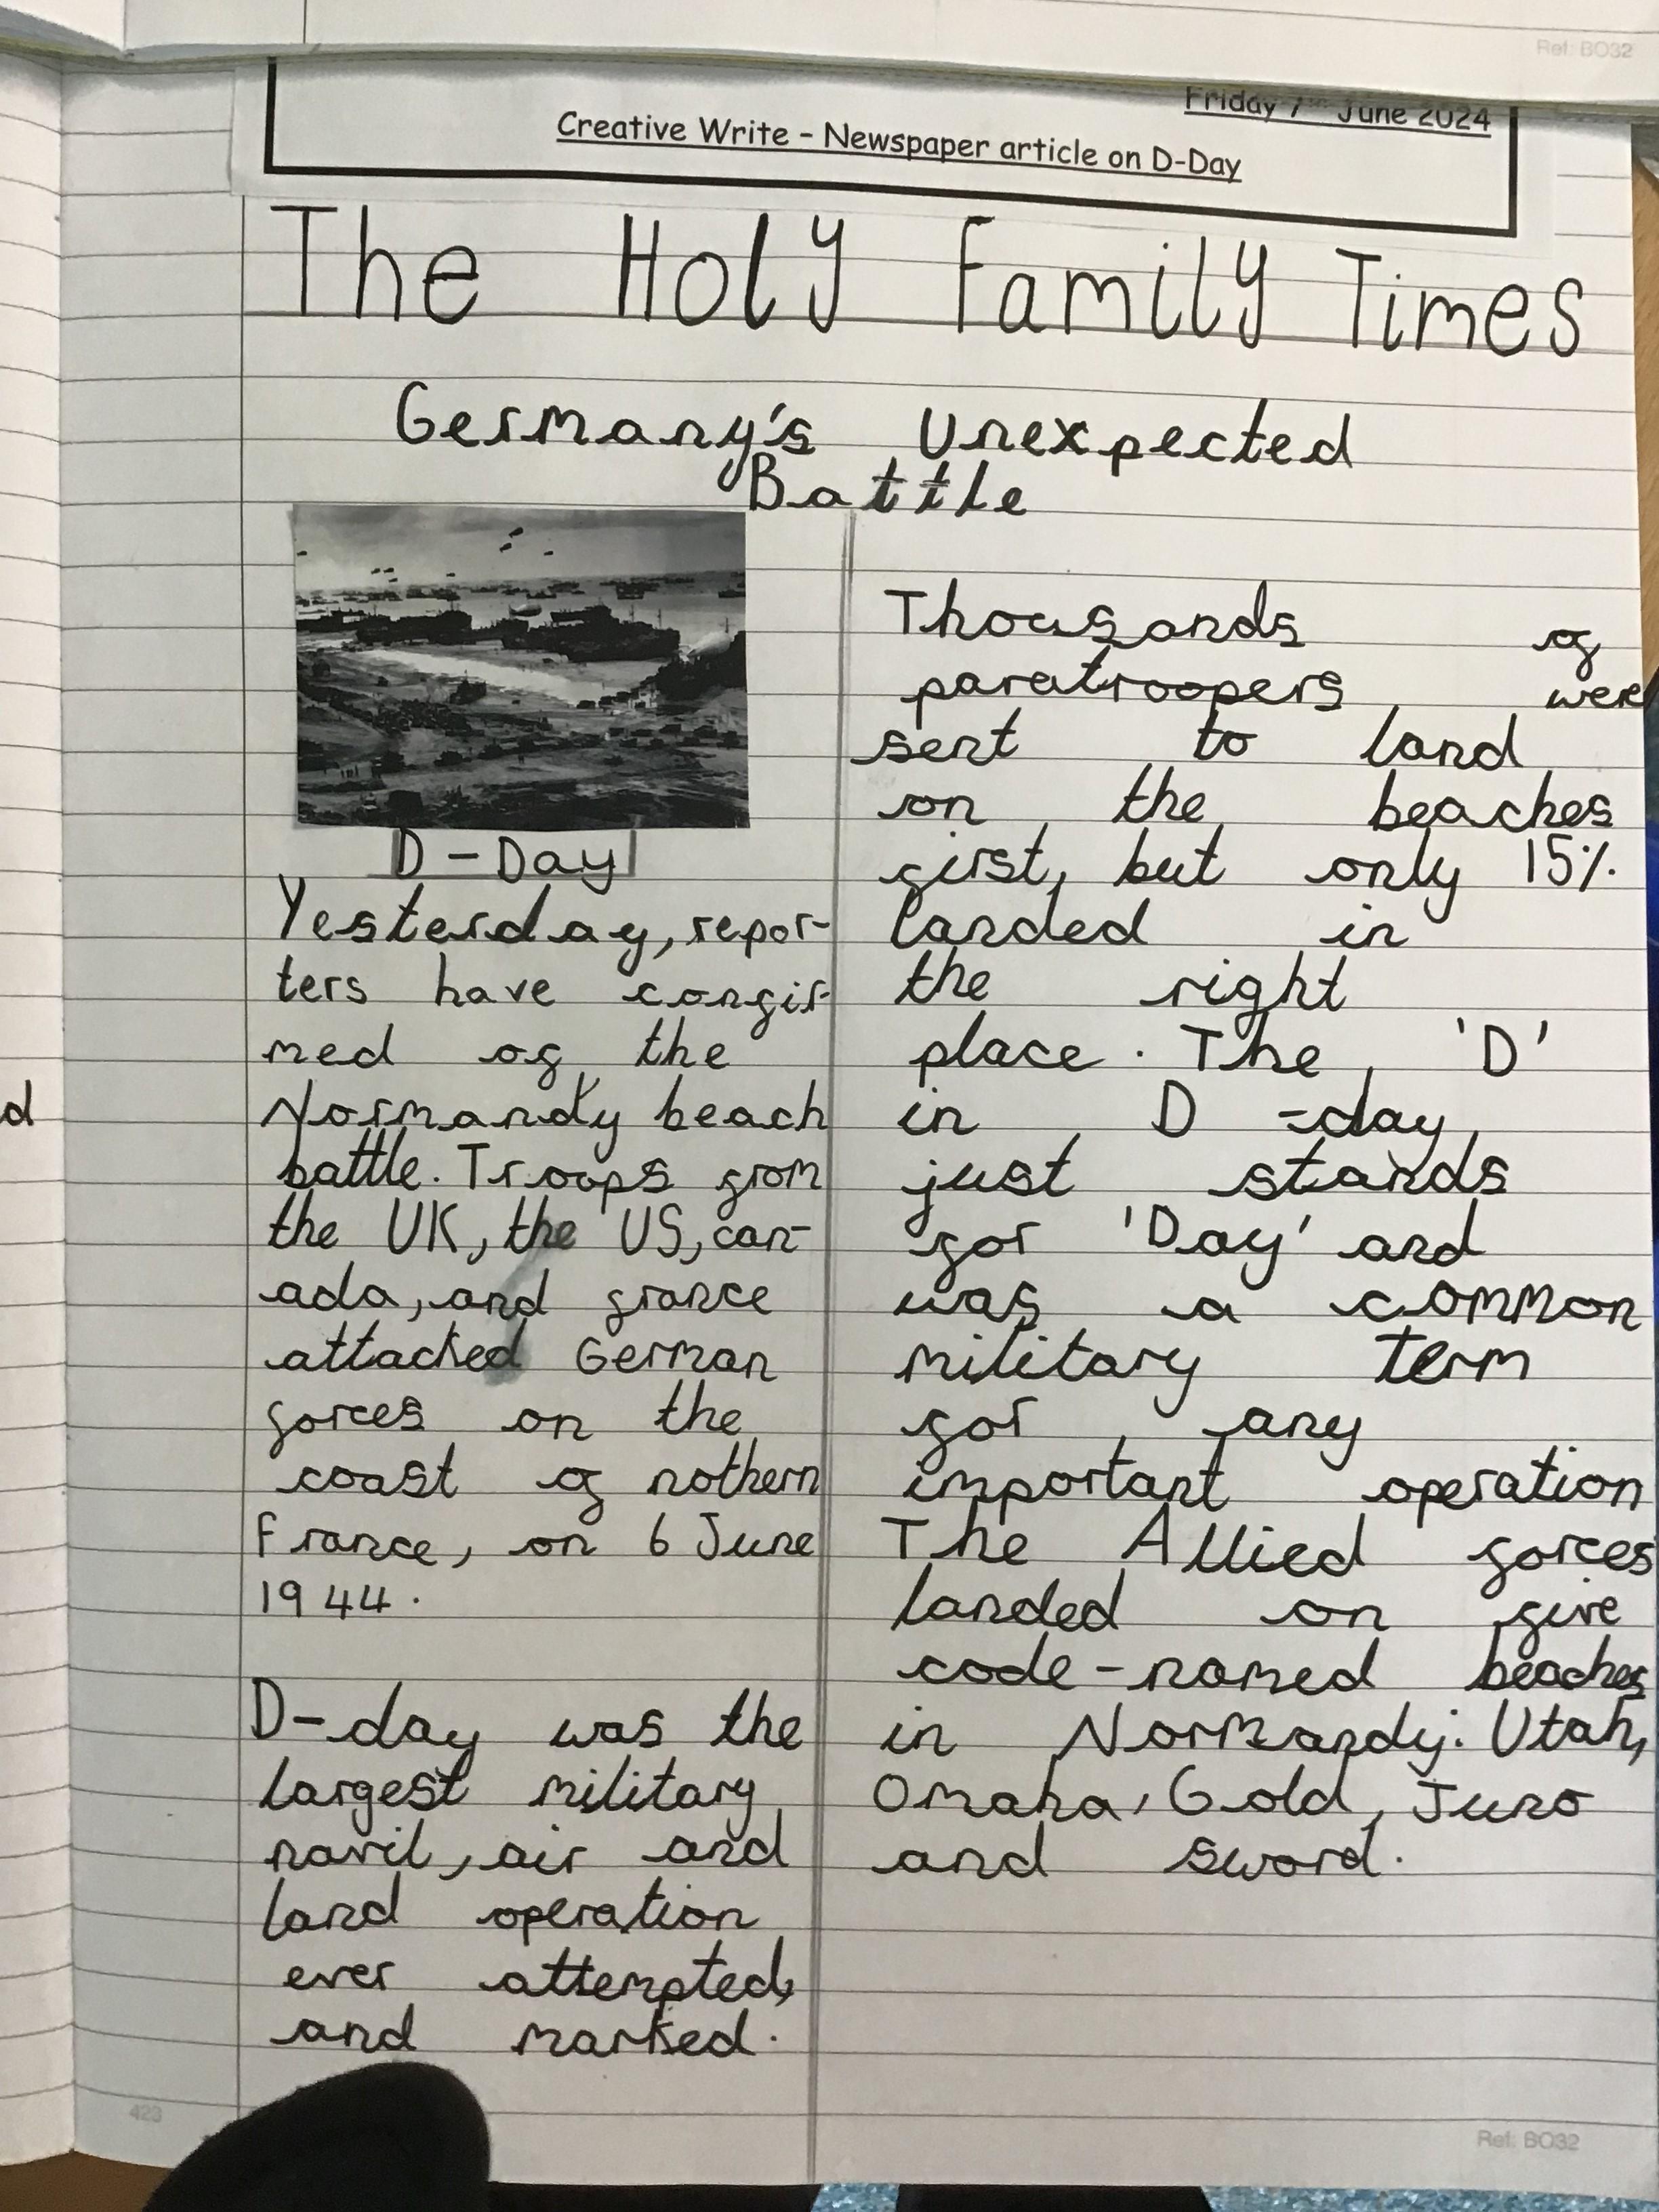 Ref: BO32
Friday 7th June 2024
Creative Write – Newspaper article on D-Day
The Holy Family Times
Germany's Unexpected
Battle
D-Day
Yesterday, repor-
ters have confir-
med of the
Normandy beach
battle. Troops from
the UK, the US, can-
ada, and france
attacked German
forces on the
coast of nothern
France, on 6 June
1944.
D-day was the
largest military
navil, air and
land operation
ever attempted,
and marked.
Thousands of
paratroopers were
sent to land
on the beaches
first, but only 15%
landed in
the right
place. The 'D'
in D-day
just stands
for 'Day' and
was a common
military term
for any
important operation
The Allied forces
landed on five
code-named beaches
in Normandy: Utah,
Omaha, Gold, Juno
and sword.
d
423
Ref: BO32